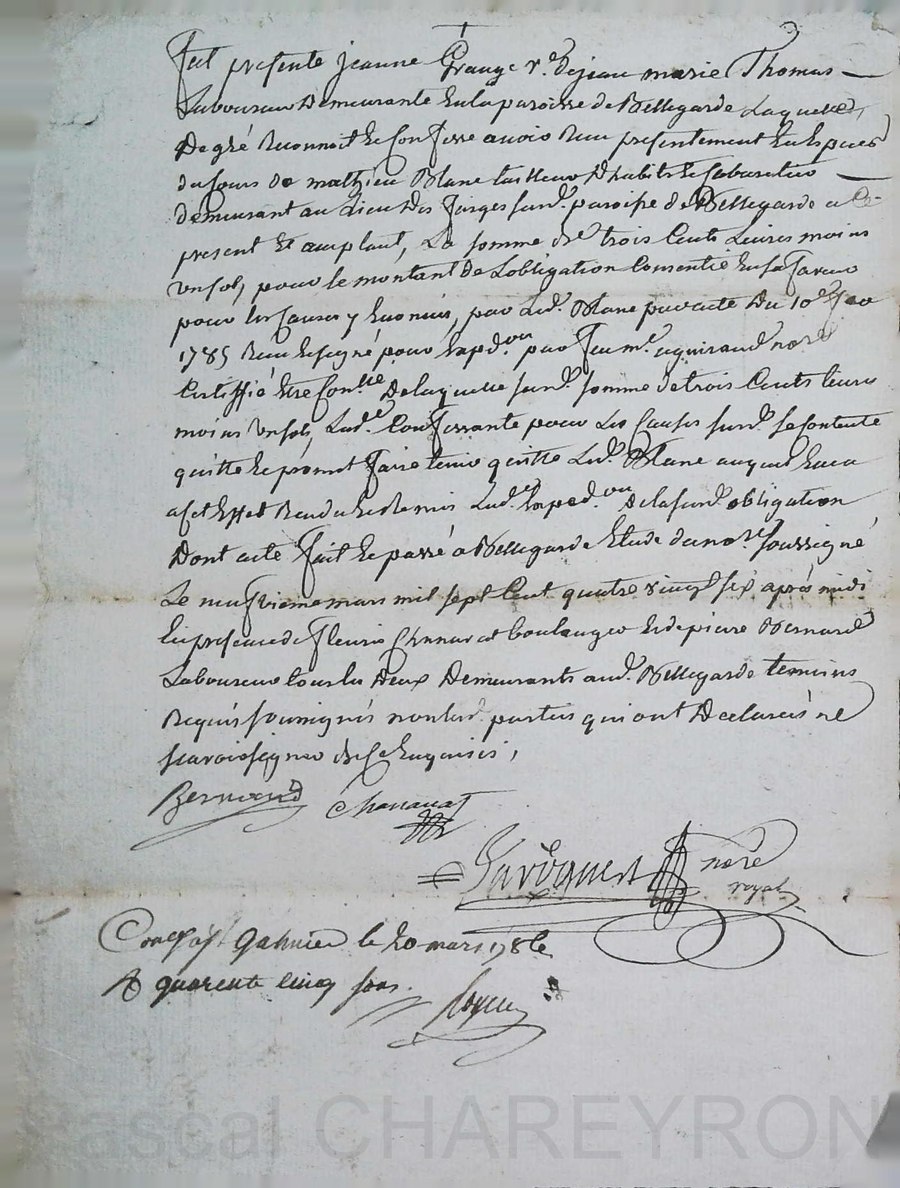 fut presente jeanne Grange ve de jean marie Thomas
Laboureur Demeurante en la paroisse de Bellegarde Laquelle,
De gré Reconnoit et Confesse avoir Reçu présentement En Espèces
du sours de mathieu Blanc tailleur D'habits et Laboureur
demeurant au Lieu des forges sur d. paroisse de Bellegarde a Ce
present et acceptant, La somme de trois Cents Livres moins
un sol, pour le montant de Lobligation Consentie En sa faveur
pour les Causes y Enoncés, par Led. Blanc par acte Du 10e
1785 Reçu Et signé pour Exped.on par feu me. aguiraud nore
Certiffié Etre Conlle De laquelle sur d. somme de trois Cents Livres
moins un sol, Lad. Confessante pour les Causes sur d. se Contente
quitte Et promet faire tenir quitte Led. Blanc auquel Elle a
a Cet Effet Rendu Et Remis Lad. Exped.on De la sur d. obligation
Dont acte fait Et passé a Bellegarde Etude du nore soussigné
Le neufvieme mars mil sept Cent quatre vingt six après midi
En presence de fleurie Chananat boulanger Et de pierre Bernard
Laboureur tous les Deux Demeurants aud. Bellegarde temoins
Requis soussignés non les d. parties qui ont Declarés ne
scavoir signer de Ce Enquises,
Bernard Chananat
nore
royal
Con^e a st Galmier le 20 mars 1786
R quarente cinq sous.
Pascal CHAREYRON